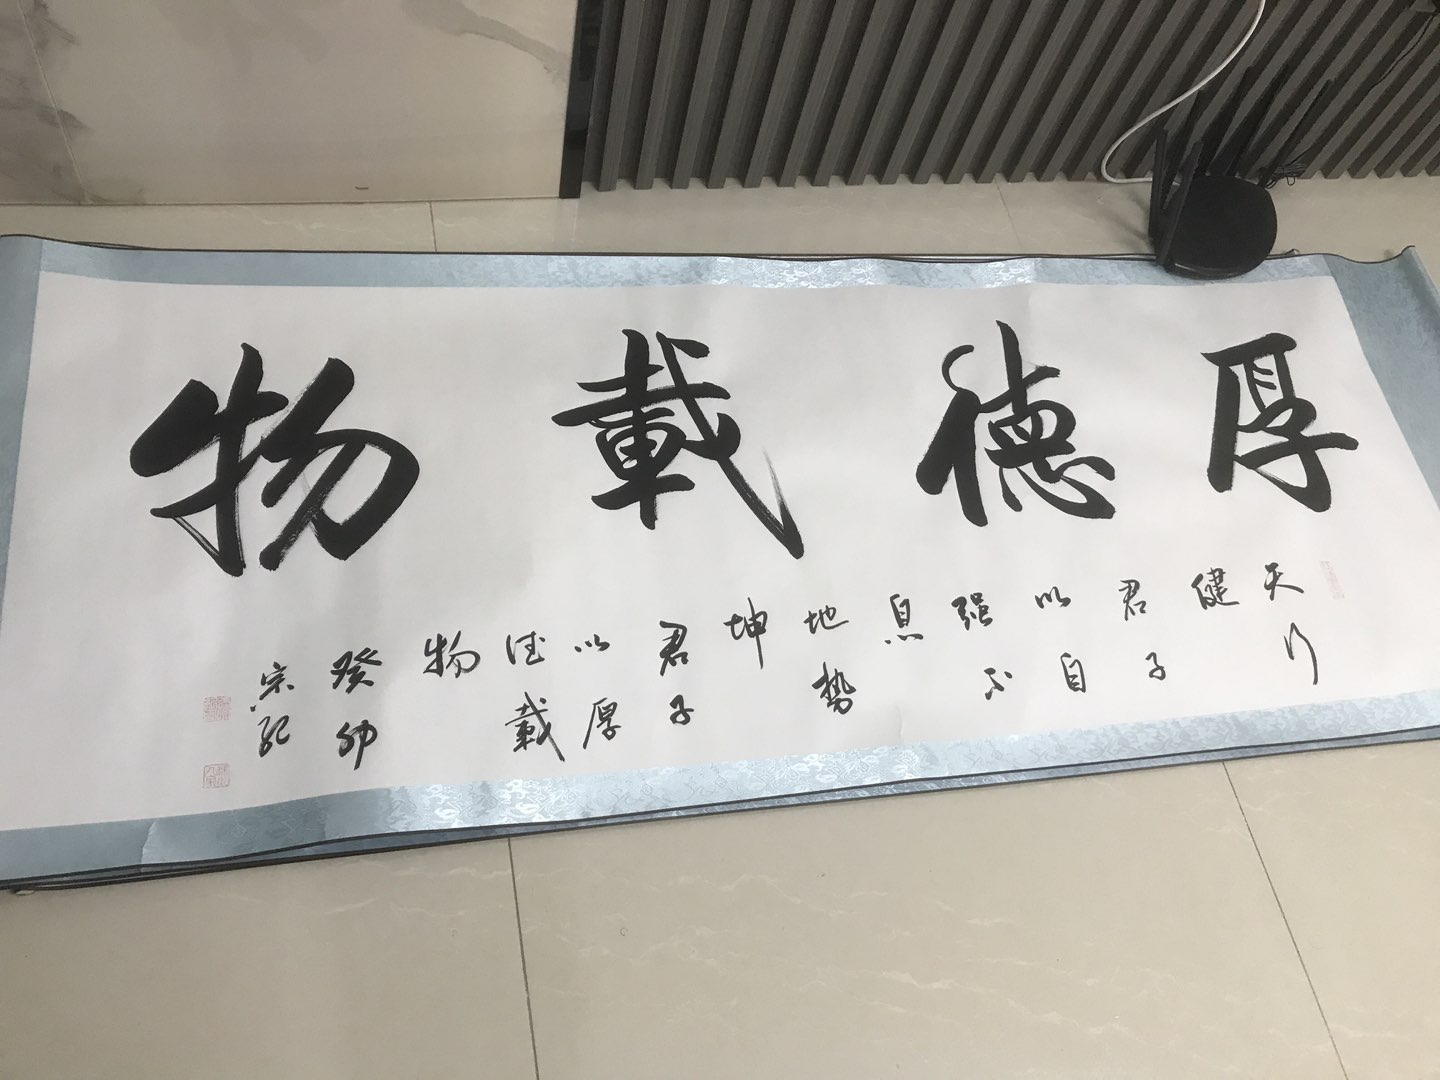 厚德載物
天行
健
君子
以自
强不
息
地势
坤
君子
以厚
德載
物
癸卯
宗